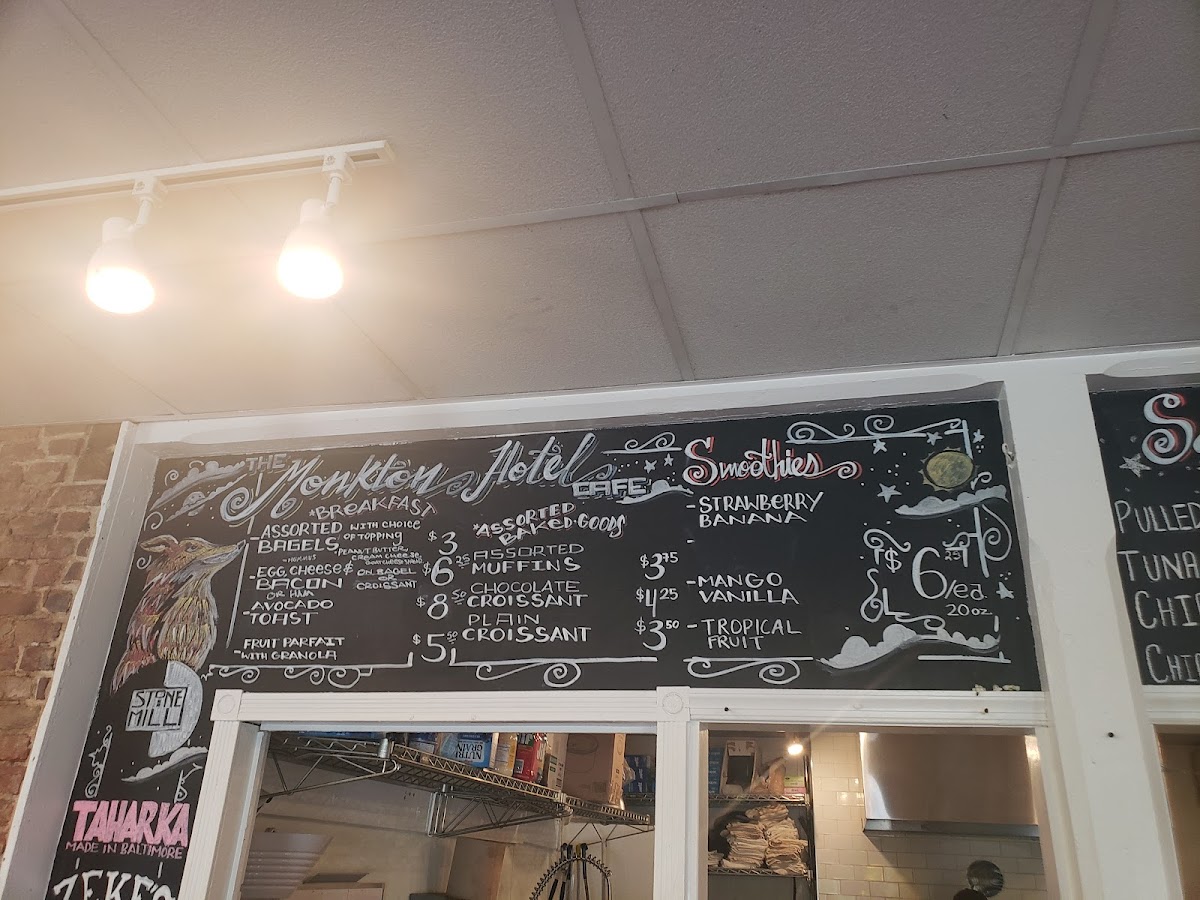 THE Monkton Hotel CAFE
*BREAKFAST
-ASSORTED WITH CHOICE
BAGELS OF TOPPING $3
PEANUT BUTTER,
-HUMMUS CREAM CHEESE,
-EGG, CHEESE & ON BAGEL $6 25
BACON OR
OR HAM CROISSANT
-AVOCADO $8 50
TOAST
-FRUIT PARFAIT $5 50
WITH GRANOLA
*ASSORTED
BAKED-GOODS
ASSORTED
MUFFINS $3 75
CHOCOLATE
CROISSANT $4 25
PLAIN
CROISSANT $3 50
Smoothies
-STRAWBERRY
BANANA
-
-MANGO
VANILLA
-TROPICAL
FRUIT
$6 25/ea
20oz
STONE
MILL
TAHARKA
MADE IN BALTIMORE
ZEKE'S
S
PULLE
TUNA
CHI
CHI
NUTRI
GRAIN